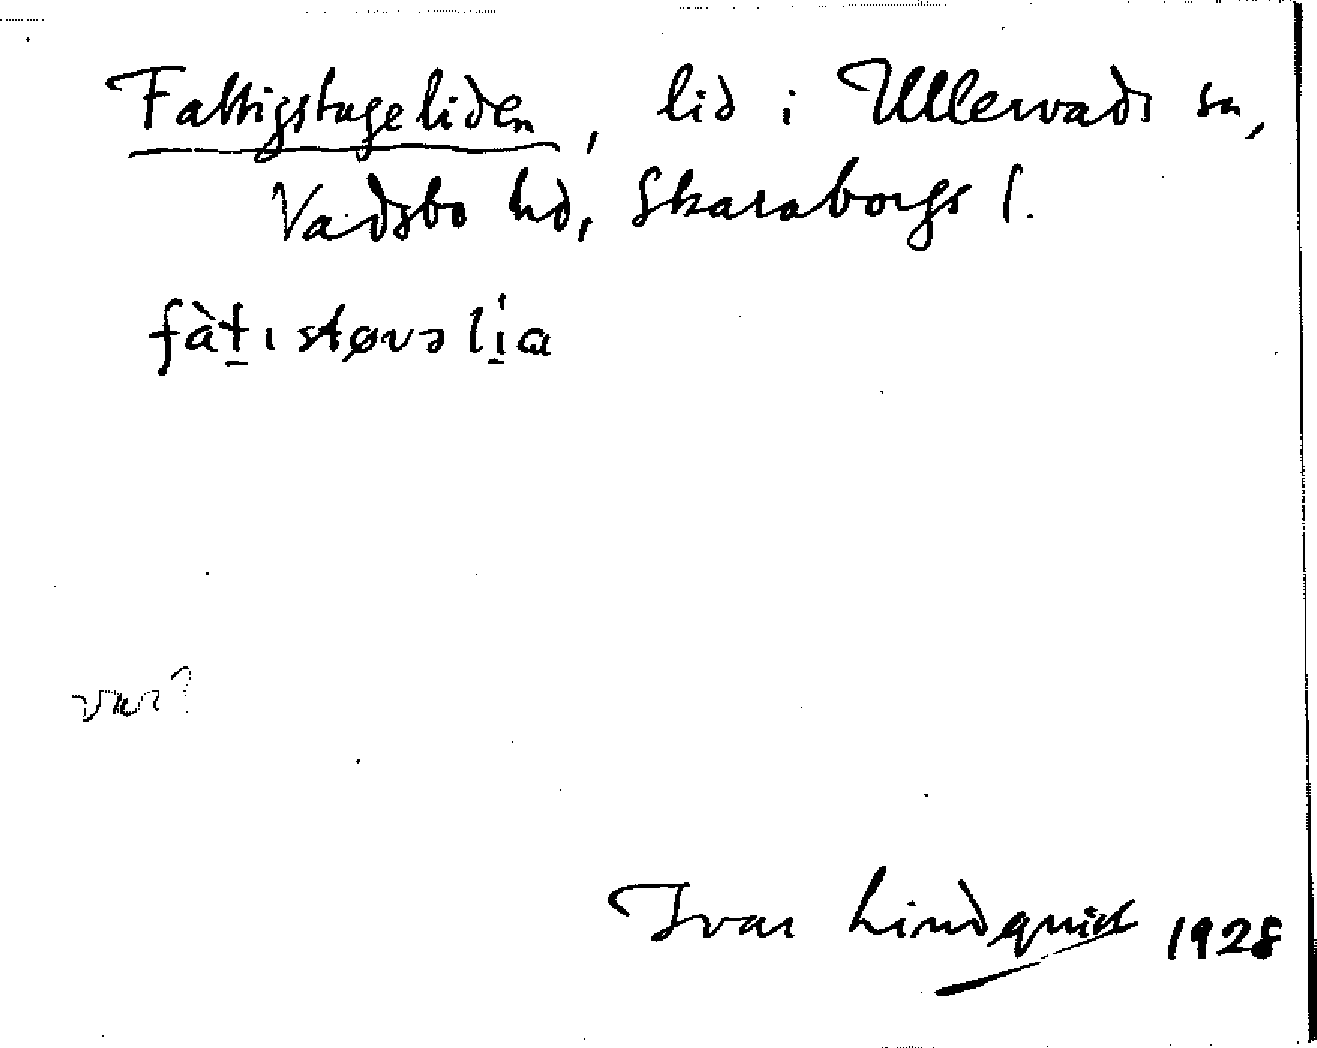 Fattigstugeliden, lid i Ullervads sn,
Vadsbo hd, Skaraborgs l.
fàt̲ıstøvəlı̲́a
var?
Ivar Lindquist 1928